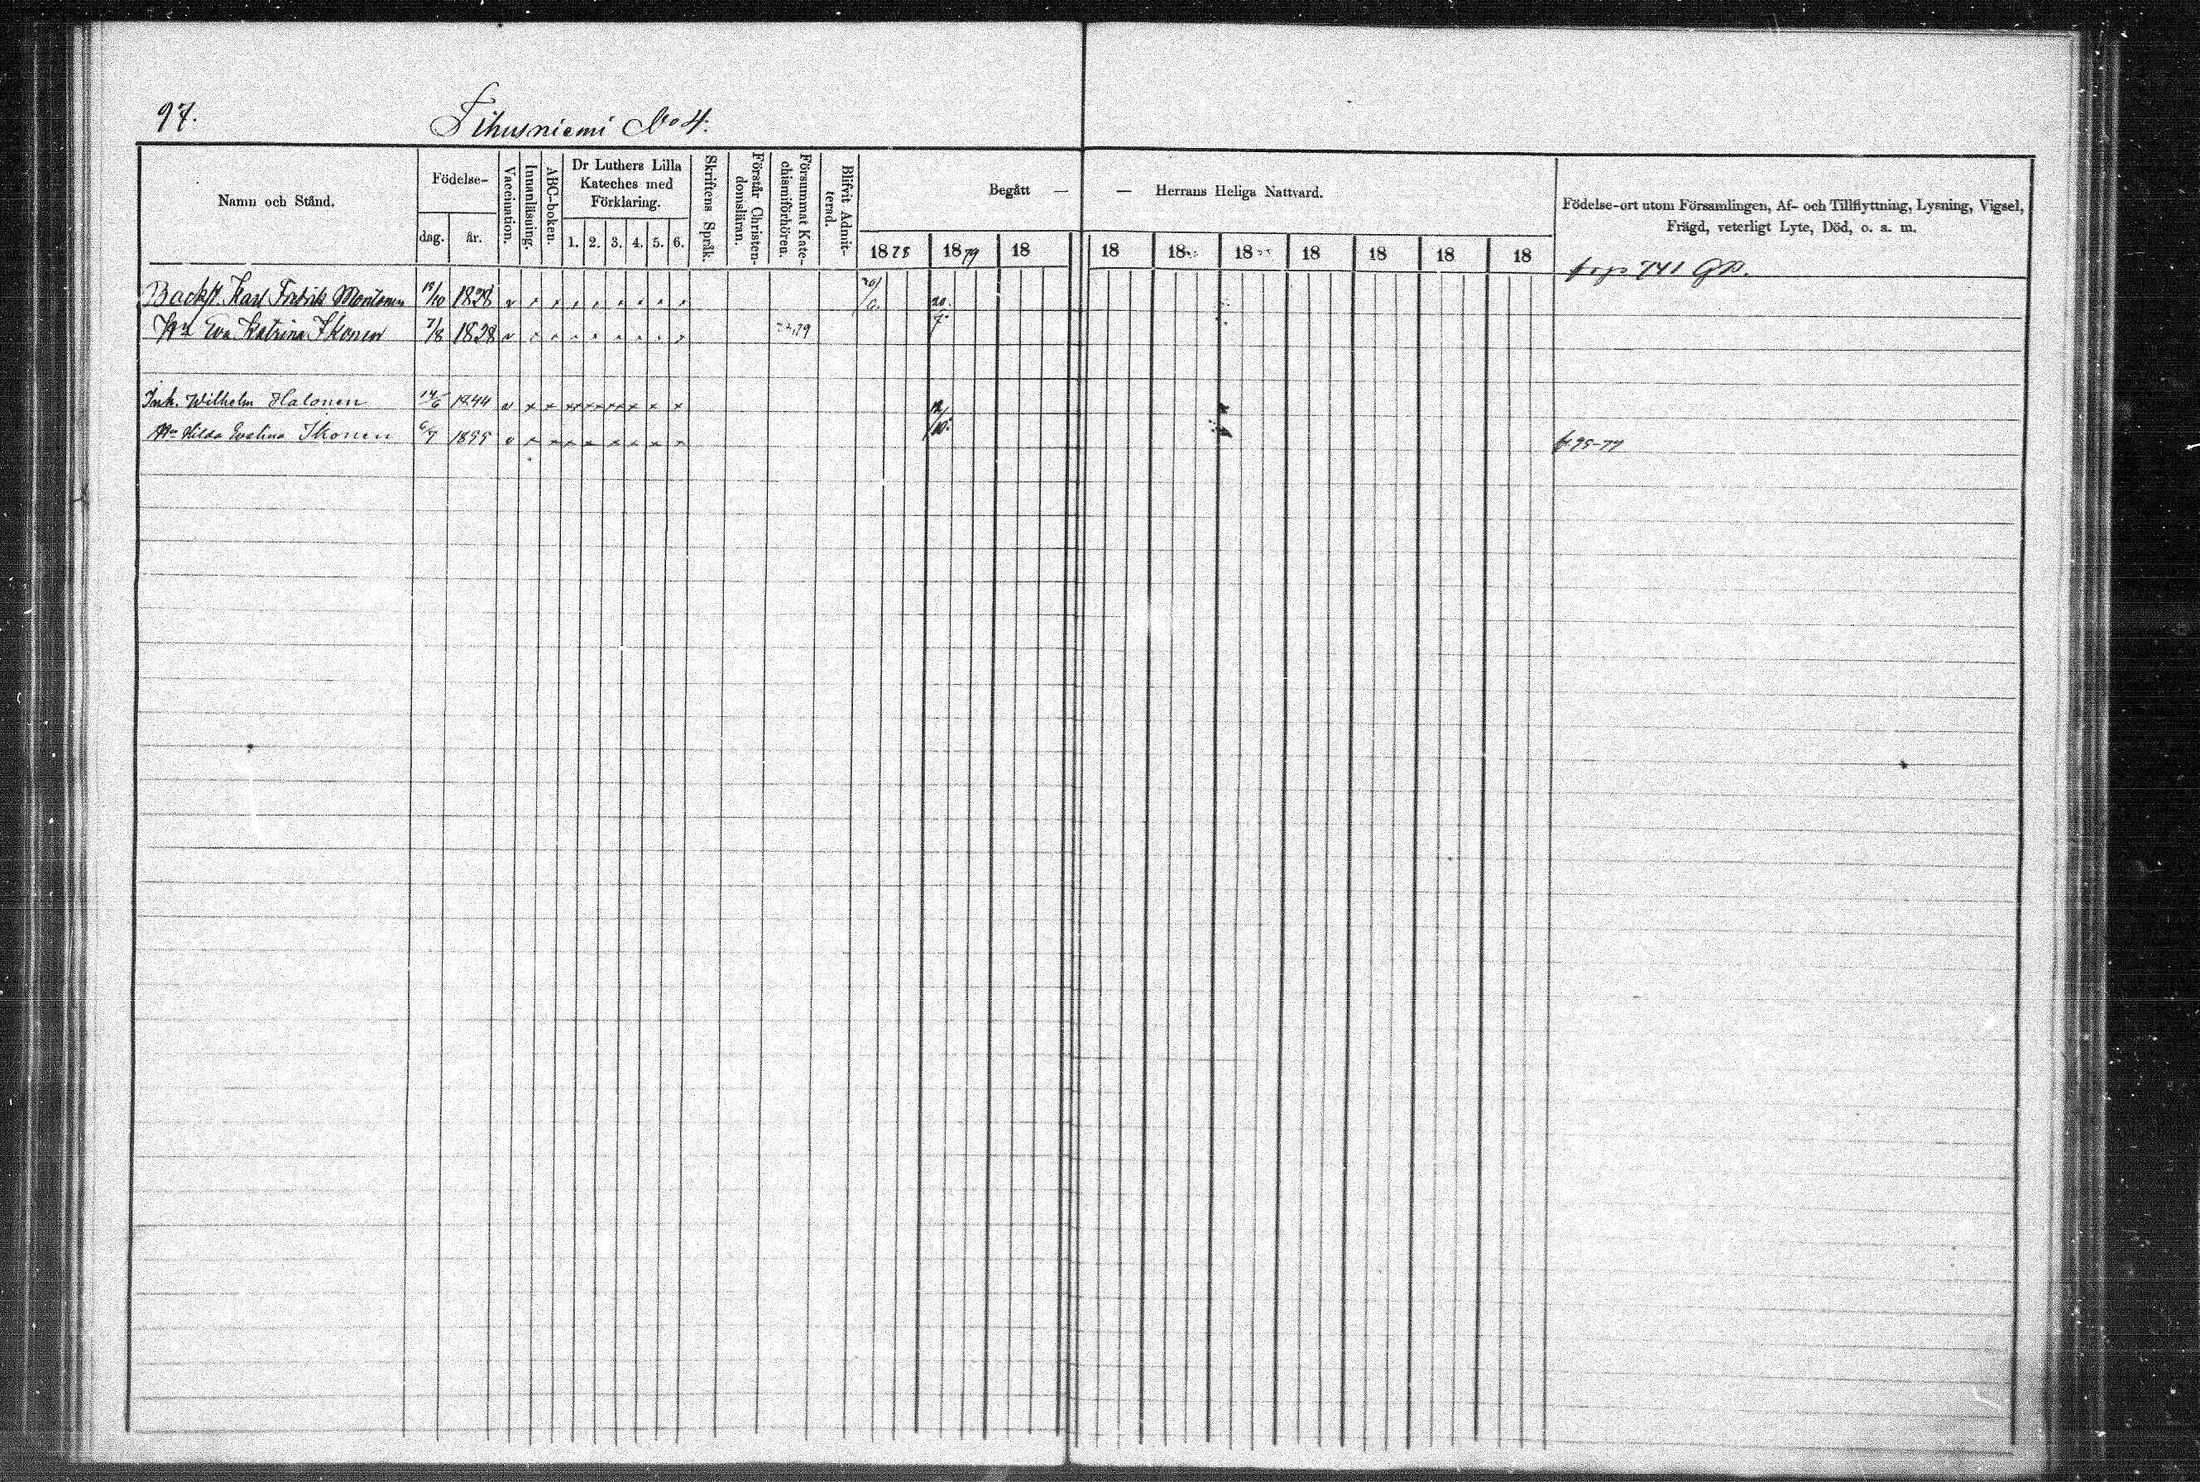 97.
Tihusniemi No 4.
Namn och Stånd.
Födelse-
dag.
år.
Vaccination.
Innanläsning.
ABC-boken.
Dr Luthers Lilla
Kateches med
Förklaring.
1. 2. 3. 4. 5. 6.
Skriftens Språk.
Förstår Christen-
domsläran.
Försummat Kate-
chismiförhören.
Blifvit Admit-
terad.
Begått —
— Herrans Heliga Nattvard.
1878 1879 18 18 18 18 18 18 18 18
Födelse-ort utom Församlingen, Af- och Tillflyttning, Lysning, Vigsel,
Frägd, veterligt Lyte, Död, o. a. m.
741
Karl Fredrik Montonen 18/10 1828 v
Hu Eva Katrina Ikonen 7/8 1828 v
Inh. Wilhelm Halonen 14/6 1844 v
Hu Hilda Evelina Ikonen 6/7 1855 v